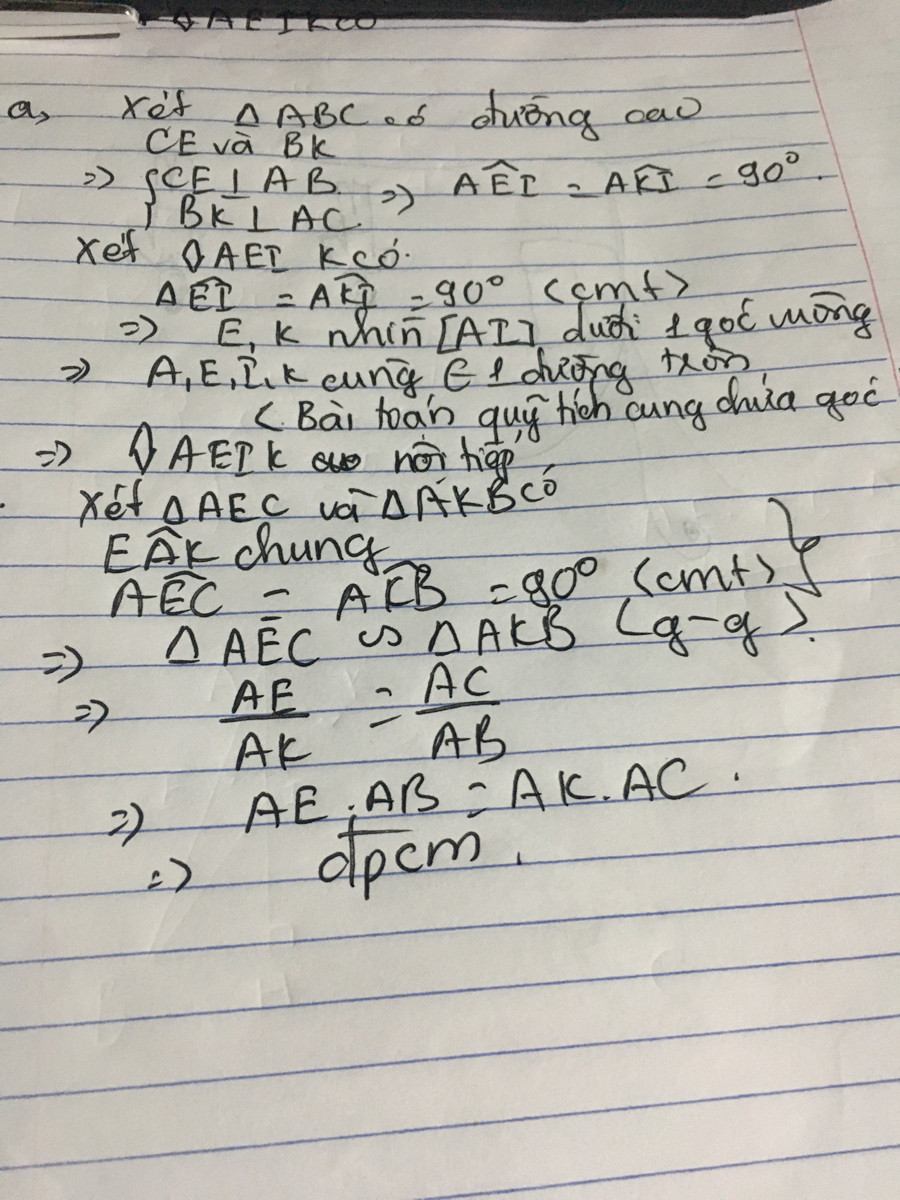 ◊ AEIK có
a, Xét Δ ABC có đường cao
CE và BK
=> { CE ⊥ AB
BK ⊥ AC. => AÊI = AK̂I = 90°.
Xét ◊ AEI K có.
AÊI = AK̂I = 90° (cmt)
=> E, K nhìn [AI] dưới 1 góc vuông
=> A, E, I, K cùng ∈ 1 đường tròn
( Bài toán quỹ tích cung chứa góc
=> ◊ AEIK nội tiếp
Xét Δ AEC và Δ AKB có
EÂK chung
AÊC = AK̂B = 90° (cmt) }
=> Δ AEC ∽ Δ AKB (g-g).
=> AE/AK = AC/AB
=> AE.AB = AK.AC.
=> đpcm.